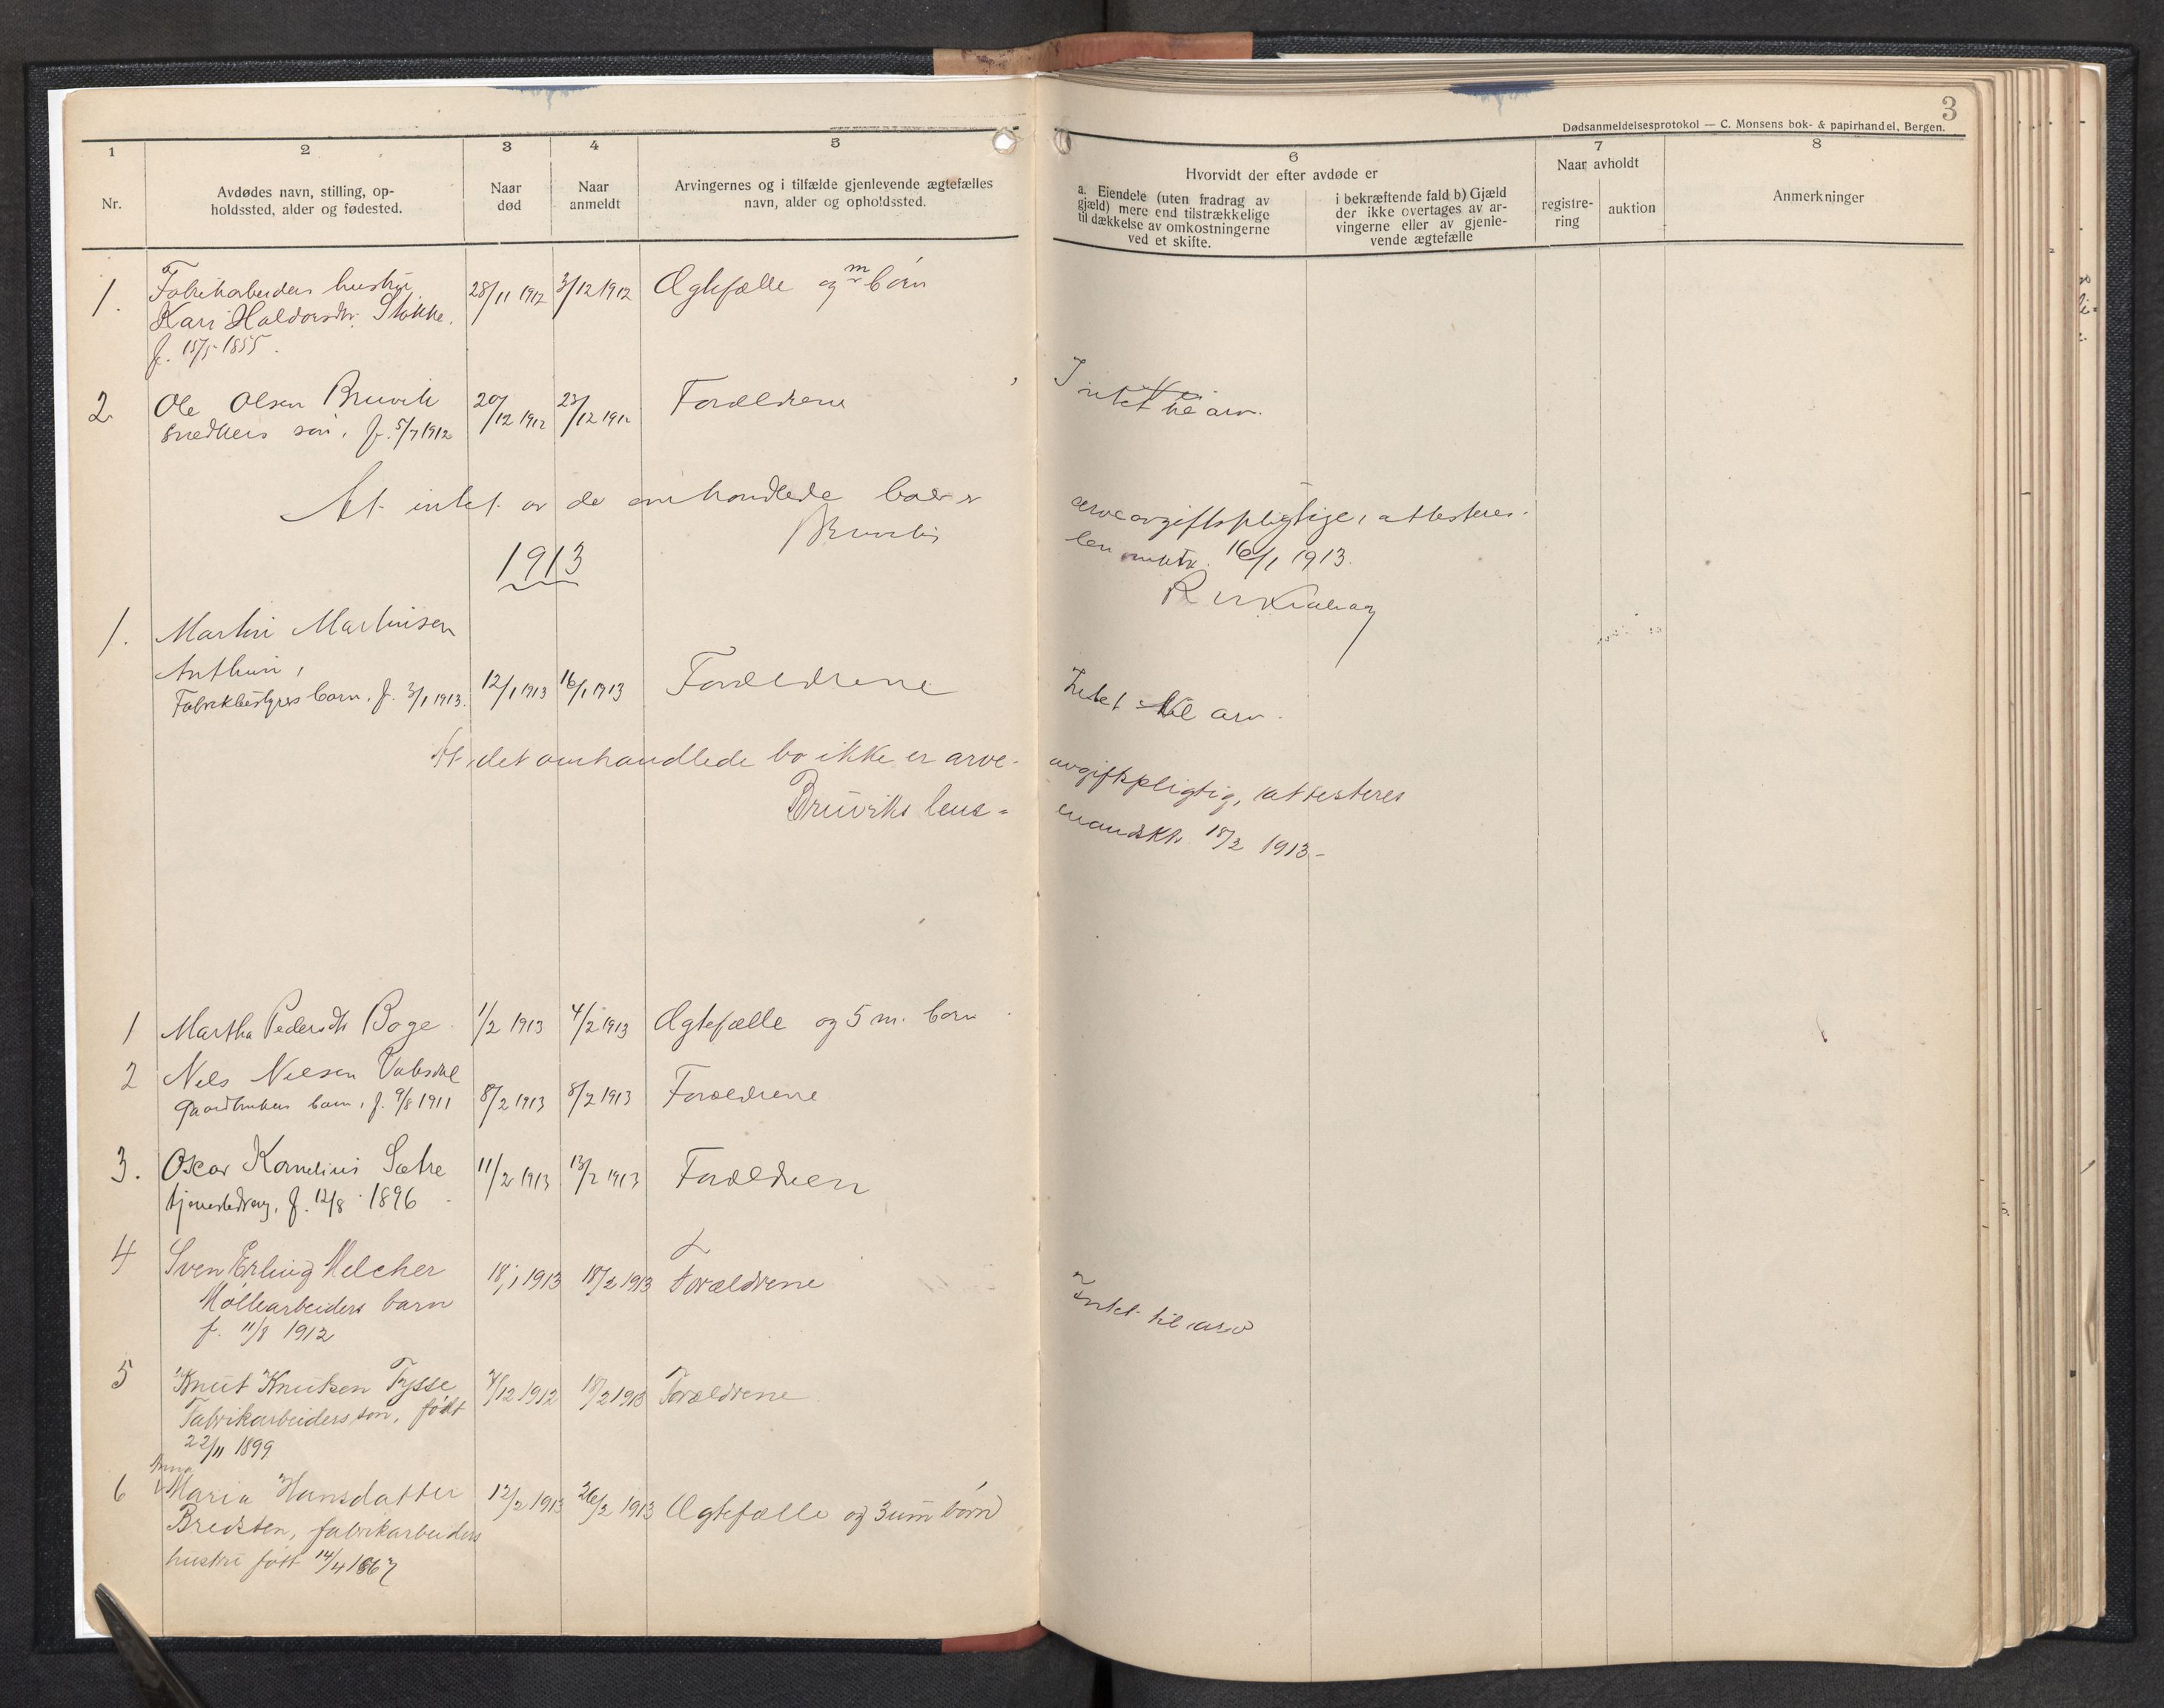 3
Dødsanmeldelsesprotokol — C. Monsens bok- & papirhandel, Bergen.
1
2
3
4
5
6
7
8
Nr.
Avdødes navn, stilling, op-
holdssted, alder og fødested.
Naar
død
Naar
anmeldt
Arvingernes og i tilfælde gjenlevende ægtefælles
navn, alder og opholdssted.
Hvorvidt der efter avdøde er
a. Eiendele (uten fradrag av
gjæld) mere end tilstrækkelige
til dækkelse av omkostningerne
ved et skifte.
i bekræftende fald b) Gjæld
der ikke overtages av ar-
vingerne eller av gjenle-
vende ægtefælle
Naar avholdt
registre-
ring
auktion
Anmerkninger
1. Fabrikarbeiders hustru 28/11 1912 3/12 1912 Ægtefælle og m børn
Kari Haldorsdtr. Stokke.
f. 15/5 1855.
2 Ole Olsen Bruvik 20/12 1912 23/12 1912 Forældrene Intet til arv.
snedkers søn, f. 5/7 1912
At intet av de omhandlede boer er arveavgiftspligtige, attesteres.
Bruvik len mktr. 16/1 1913.
1913
1. Martin Martinsen
Anthun,
Fabrikbestyrers barn. f. 3/1 1913. 12/1 1913 16/1 1913 Forældrene Intet til arv.
At det omhandlede bo ikke er arve- avgiftspligtig, attesteres
Bruviks lens- mandskt. 18/2 1913-
1 Martha Pedersdtr Boge 1/2 1913 4/2 1913 Ægtefælle og 5 m. børn
2 Nils Nilsen Vaksdal
Gaardbrukers barn, f. 9/8 1911 8/2 1913 8/2 1913 Forældrene
3. Oscar Kornelius Sætre 11/2 1913 13/2 1913 Forældren
tjenestedreng, f. 12/8 1896
4 Sven Erling Melcher 18/1 1913 18/2 1913 Forældrene Intet til arv
Møllearbeiders barn
f. 11/8 1912
5 Knut Knutsen Tysse /12 1912 18/2 1913 Forældrene
Fabrikarbeiders søn, født
22/11 1899
Anna
6 Maria Hansdatter 12/2 1913 26/2 1913 Ægtefælle og 3 um børn
Bredsten, fabrikarbeiders
hustru født 14/4 1867